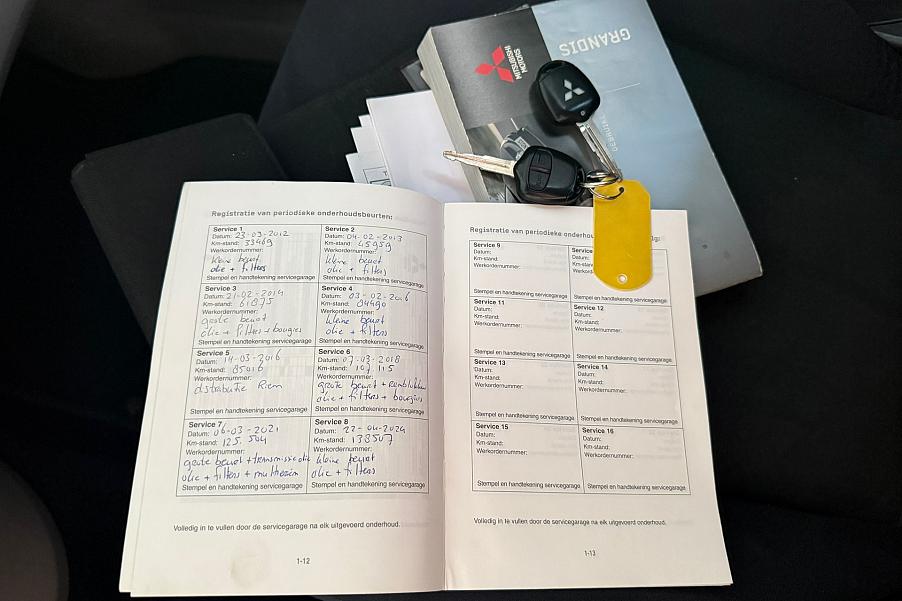 GRANDIS
MITSUBISHI
MOTORS
Registratie van periodieke onderhoudsbeurten:
Service 1
Datum: 23-03-2012
Km-stand: 33469
Werkordernummer:
kleine beurt
olie + filters
Stempel en handtekening servicegarage
Service 2
Datum: 04-02-2013
Km-stand: 45959
Werkordernummer:
kleine beurt
olie + filters
Stempel en handtekening servicegarage
Service 3
Datum: 21-02-2014
Km-stand: 61875
Werkordernummer:
grote beurt
olie + filters + bougies
Stempel en handtekening servicegarage
Service 4
Datum: 03-02-2016
Km-stand: 84490
Werkordernummer:
kleine beurt
olie + filters
Stempel en handtekening servicegarage
Service 5
Datum: 14-03-2016
Km-stand: 85016
Werkordernummer:
distributie Riem
Stempel en handtekening servicegarage
Service 6
Datum: 07-03-2018
Km-stand: 107.115
Werkordernummer:
grote beurt + Remblokken
olie + filters + bougies
Stempel en handtekening servicegarage
Service 7
Datum: 06-03-2021
Km-stand: 125.504
Werkordernummer:
grote beurt + transmissie olie
olie + filters + multiriem
Stempel en handtekening servicegarage
Service 8
Datum: 22-04-2024
Km-stand: 138507
Werkordernummer:
kleine beurt
olie + filters
Stempel en handtekening servicegarage
Volledig in te vullen door de servicegarage na elk uitgevoerd onderhoud.
1-12
Registratie van periodieke
Service 9
Datum:
Km-stand:
Werkordernummer:
Stempel en handtekening servicegarage
Service
Datum:
Stempel en handtekening servicegarage
Service 11
Datum:
Km-stand:
Werkordernummer:
Stempel en handtekening servicegarage
Service 12
Datum:
Km-stand:
Werkordernummer:
Stempel en handtekening servicegarage
Service 13
Datum:
Km-stand:
Werkordernummer:
Stempel en handtekening servicegarage
Service 14
Datum:
Km-stand:
Werkordernummer:
Stempel en handtekening servicegarage
Service 15
Datum:
Km-stand:
Werkordernummer:
Stempel en handtekening servicegarage
Service 16
Datum:
Km-stand:
Werkordernummer:
Stempel en handtekening servicegarage
Volledig in te vullen door de servicegarage na elk uitgevoerd onderhoud.
1-13